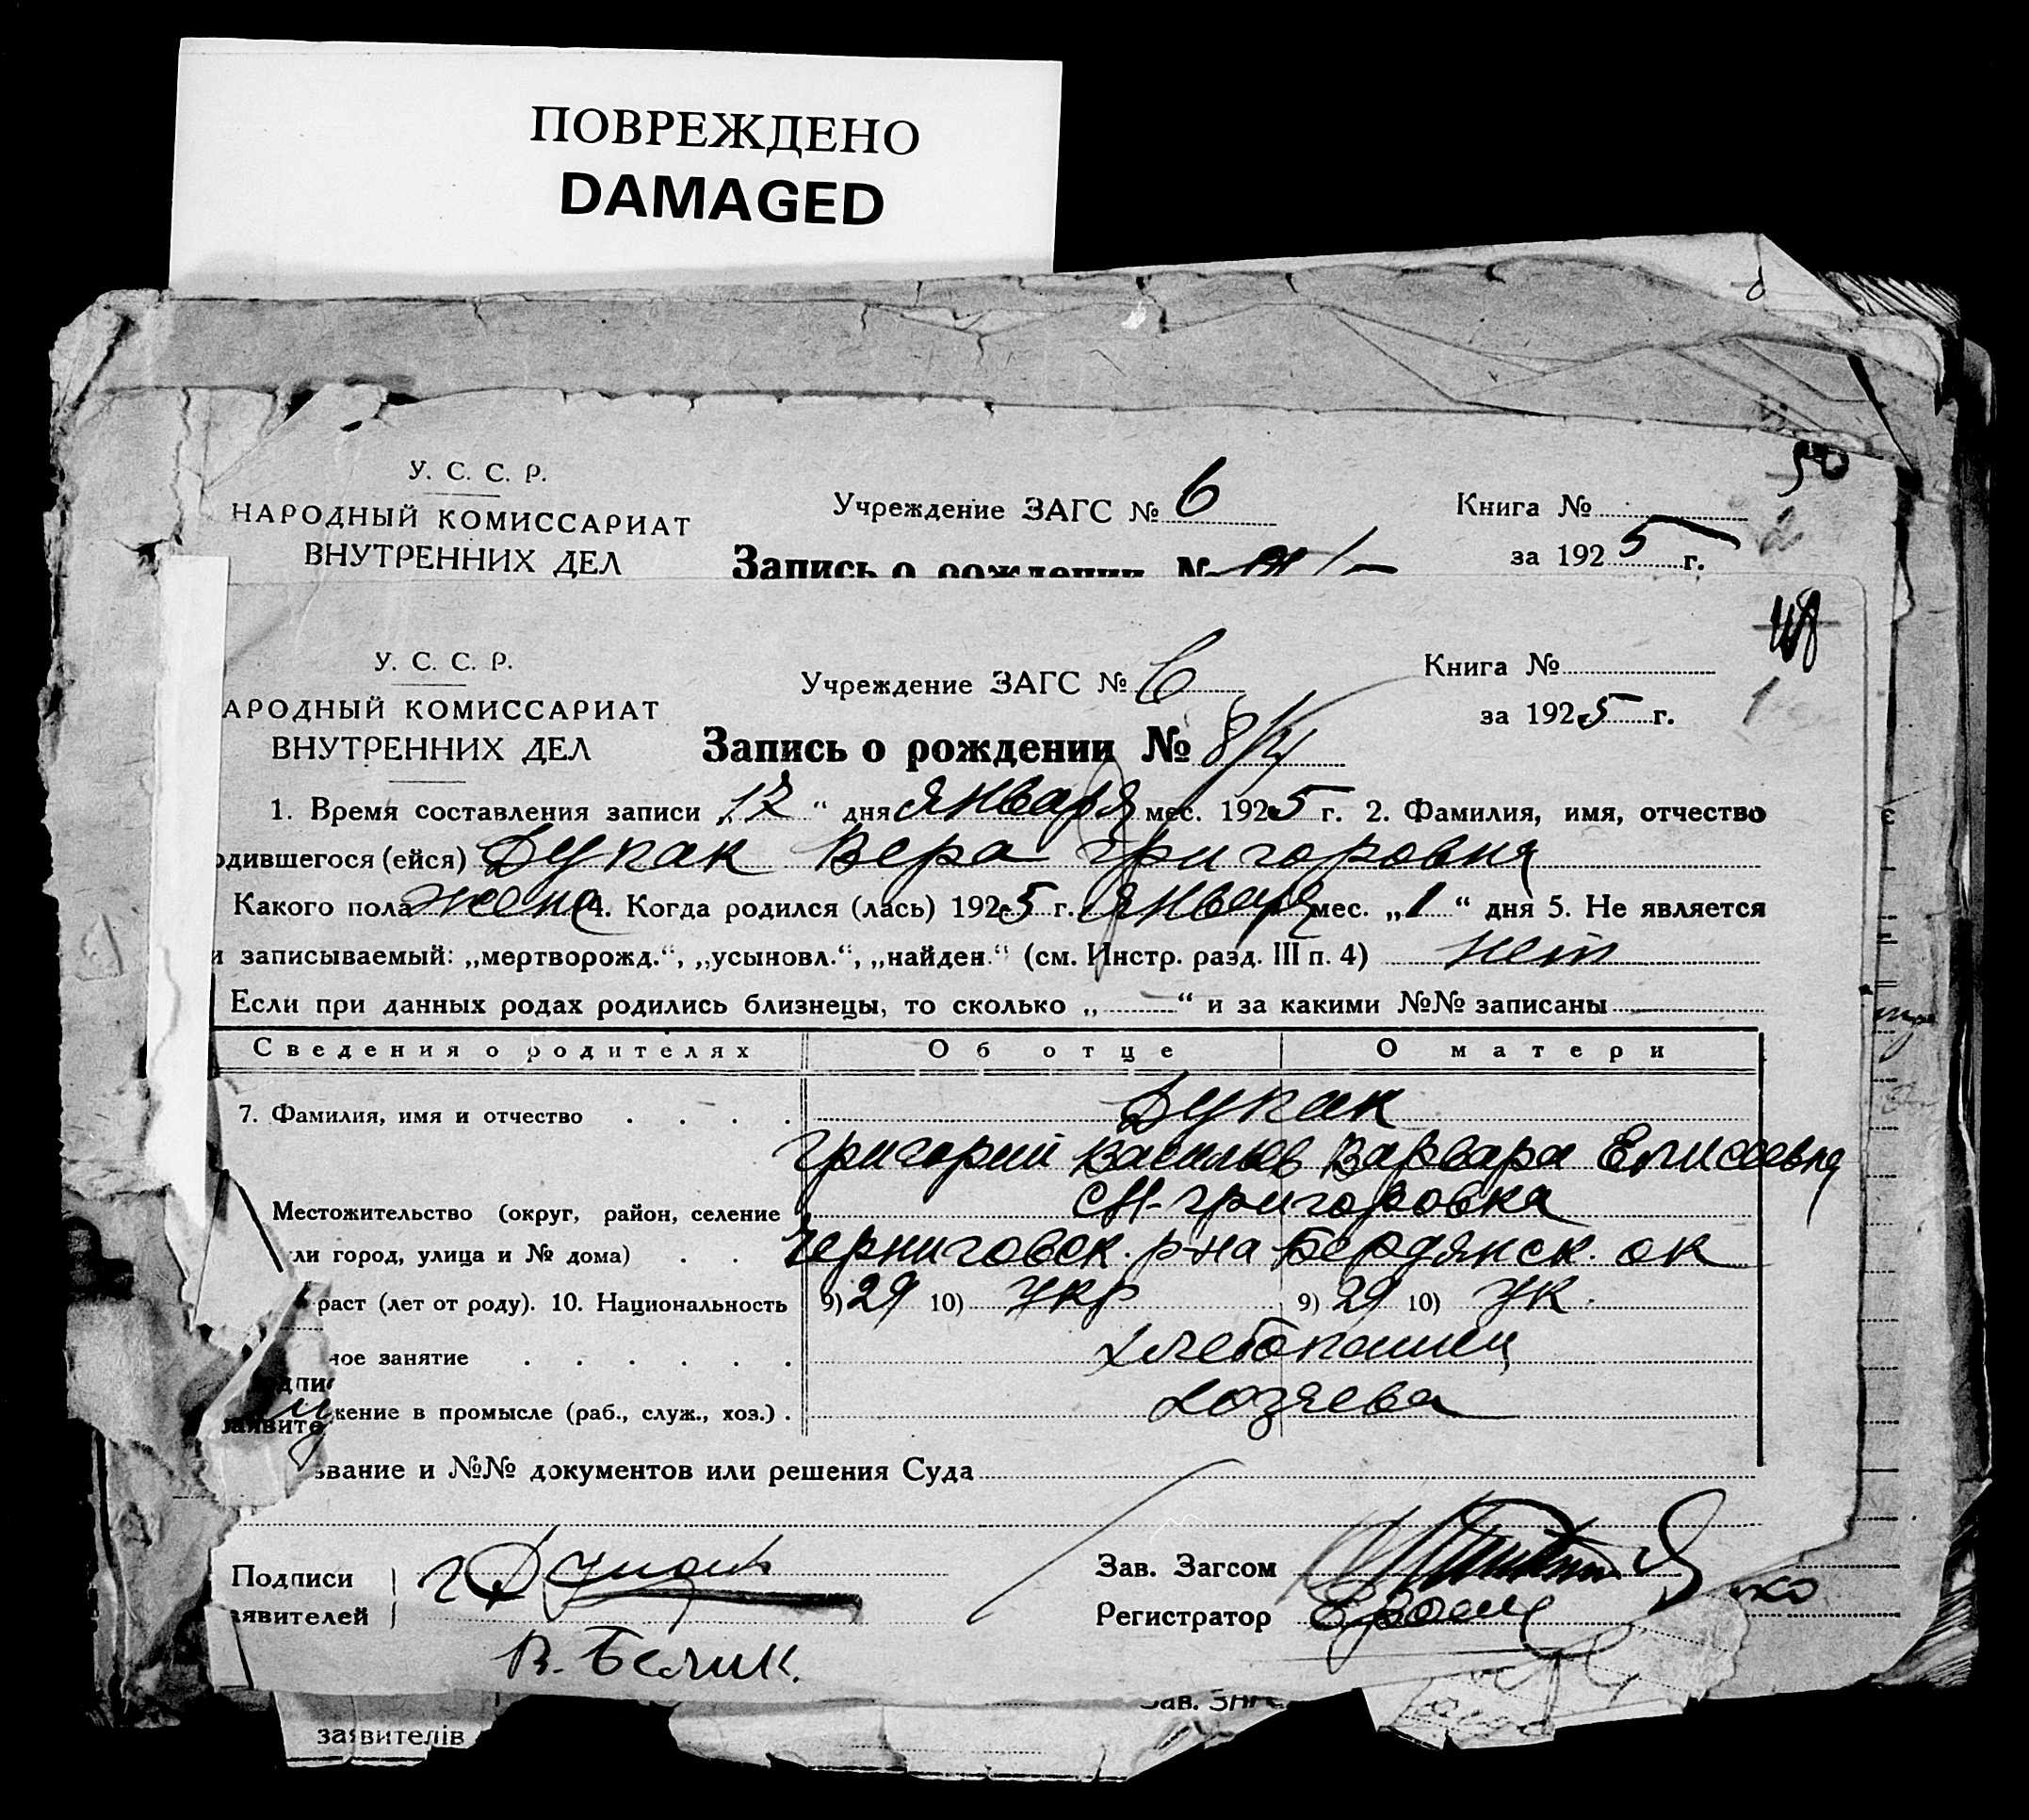 ПОВРЕЖДЕНО
DAMAGED
50
У. С. С. Р.
НАРОДНЫЙ КОМИССАРИАТ
ВНУТРЕННИХ ДЕЛ
Учреждение ЗАГС № 6
Книга №
за 1925 г.
2
Запись о рождении №
48
У. С. С. Р.
АРОДНЫЙ КОМИССАРИАТ
ВНУТРЕННИХ ДЕЛ
Учреждение ЗАГС № 6
Книга №
за 1925 г.
1
Запись о рождении №
1. Время составления записи „17“ дня января мес. 1925 г. 2. Фамилия, имя, отчество
одившегося (ейся) Дупак Вера Григоровня
Какого пола жена 4. Когда родился (лась) 1925 г. января мес. „1“ дня 5. Не является
и записываемый: „мертворожд.“, „усыновл.“, „найден.“ (см. Инстр. разд. III п. 4) нет
Если при данных родах родились близнецы, то сколько „ “ и за какими №№ записаны
Сведения о родителях Об отце О матери
7. Фамилия, имя и отчество Дупак
Григорий Васильев Варвара Елисеевна
Местожительство (округ, район, селение М-Григоровка
ли город, улица и № дома) Черниговск. р-на Бердянск. ок
раст (лет от роду). 10. Национальность 9) 29 10) укр 9) 29 10) ук.
ное занятие хлебопашец
жение в промысле (раб., служ., хоз.) хозяева
звание и №№ документов или решения Суда
Подписи
аявителей
Г Дупак
В. Белик.
Зав. Загсом
Регистратор
ко
заявителів
Зав. ЗАГС